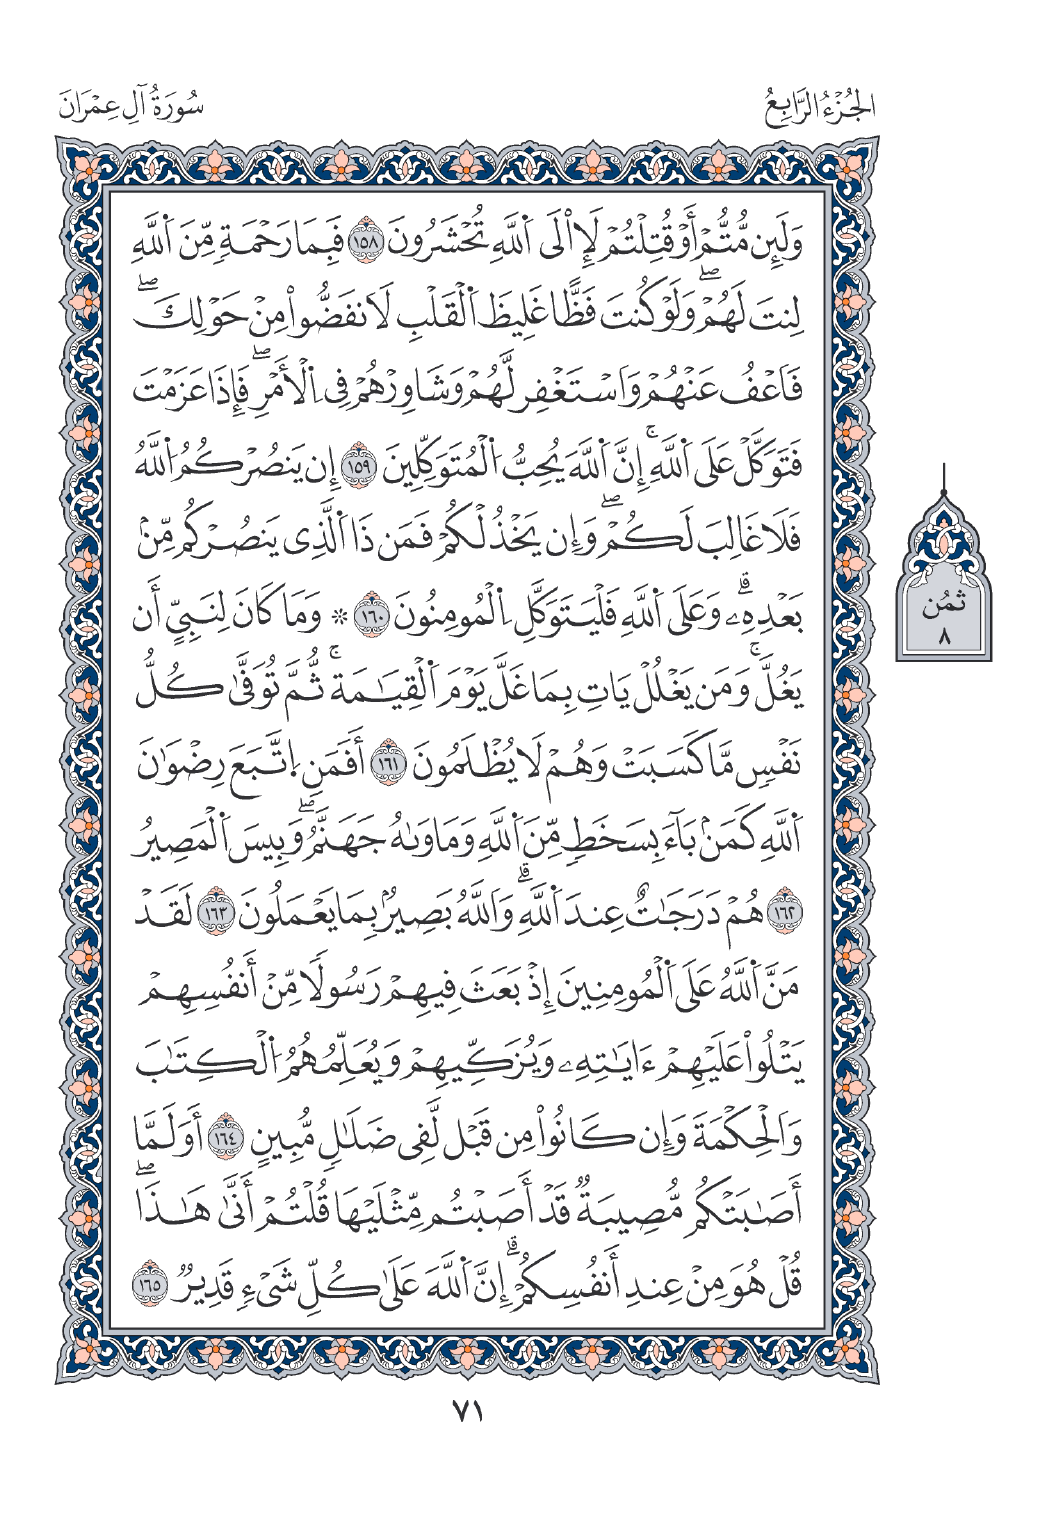 الجُزْءُ الرَّابِعُ
سُورَةُ آلِ عِمْرَانَ
وَلَئِن مُّتُّمْ أَوْ قُتِلْتُمْ لَإِاْلَى اَ۬للَّهِ تُحْشَرُونَ ١٥٨ فَبِمَا رَحْمَةٖ مِّنَ اَ۬للَّهِ
لِنتَ لَهُمْۖ وَلَوْ كُنتَ فَظّاً غَلِيظَ اَ۬لْقَلْبِ لَانفَضُّواْ مِنْ حَوْلِكَۖ
فَاعْفُ عَنْهُمْ وَاسْتَغْفِر لَّهُمْ وَشَاوِرْهُمْ فِي اِ۬لْأَمْرِۖ فَإِذَا عَزَمْتَ
فَتَوَكَّلْ عَلَى اَ۬للَّهِۚ إِنَّ اَ۬للَّهَ يُحِبُّ اُ۬لْمُتَوَكِّلِينَ ١٥٩ إِن يَنصُرْكُمُ اُ۬للَّهُ
فَلَا غَالِبَ لَكُمْۖ وَإِن يَخْذُلْكُمْ فَمَن ذَا اَ۬لَّذِي يَنصُرْكُم مِّنۢ
بَعْدِهِۦۗ وَعَلَى اَ۬للَّهِ فَلْيَتَوَكَّلِ اِ۬لْمُومِنُونَ ١٦٠ ۞ وَمَا كَانَ لِنَبِيٍّ أَن
يَغُلَّۚ وَمَن يَغْلُلْ يَاتِ بِمَا غَلَّ يَوْمَ اَ۬لْقِيَٰمَةِۚ ثُمَّ تُوَفَّىٰ كُلُّ
نَفْسٖ مَّا كَسَبَتْ وَهُمْ لَا يُظْلَمُونَ ١٦١ أَفَمَنِ اِ۪تَّبَعَ رِضْوَٰنَ
اَ۬للَّهِ كَمَنۢ بَآءَ بِسَخَطٖ مِّنَ اَ۬للَّهِ وَمَاوَىٰهُ جَهَنَّمُۖ وَبِيسَ اَ۬لْمَصِيرُ
١٦٢ هُمْ دَرَجَٰتٌ عِندَ اَ۬للَّهِۗ وَاللَّهُ بَصِيرُۢ بِمَا يَعْمَلُونَ ١٦٣ لَقَدْ
مَنَّ اَ۬للَّهُ عَلَى اَ۬لْمُومِنِينَ إِذْ بَعَثَ فِيهِمْ رَسُولاً مِّنْ أَنفُسِهِمْ
يَتْلُواْ عَلَيْهِمْ ءَايَٰتِهِۦ وَيُزَكِّيهِمْ وَيُعَلِّمُهُمُ اُ۬لْكِتَٰبَ
وَالْحِكْمَةَ وَإِن كَانُواْ مِن قَبْل لَّفِي ضَلَٰلٖ مُّبِينٍ ١٦٤ أَوَلَمَّا
أَصَٰبَتْكُم مُّصِيبَةٞ قَدْ أَصَبْتُم مِّثْلَيْهَا قُلْتُمْ أَنَّىٰ هَٰذَاۖ
قُلْ هُوَ مِنْ عِندِ أَنفُسِكُمْۗ إِنَّ اَ۬للَّهَ عَلَىٰ كُلِّ شَيْءٖ قَدِيرٞ ١٦٥
ثمُن
٨
٧١